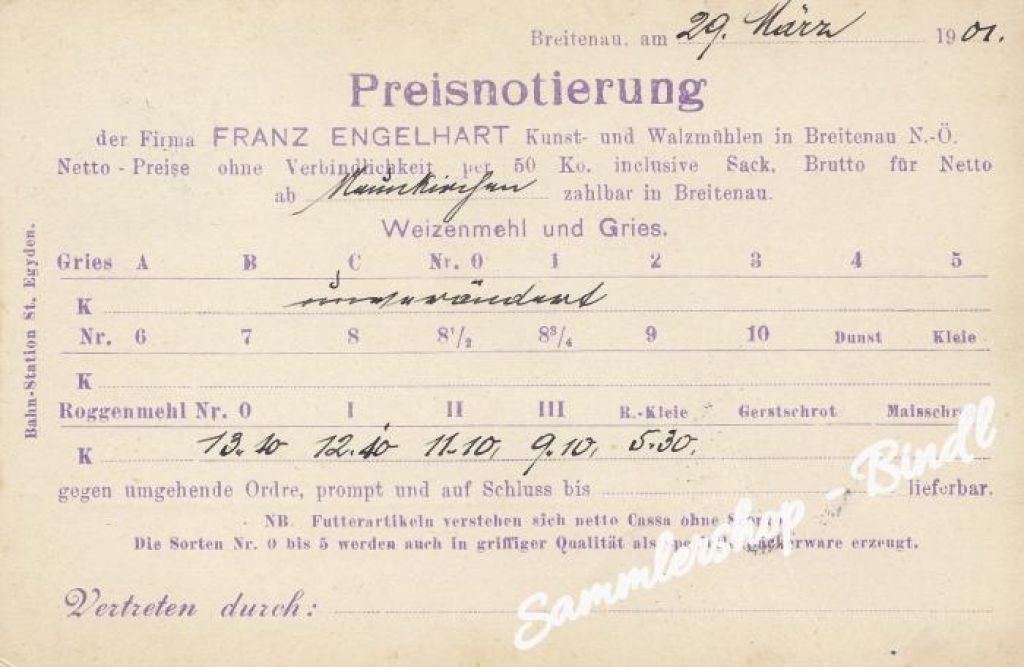 Breitenau, am 29. März 1901.
Preisnotierung
der Firma FRANZ ENGELHART Kunst- und Walzmühlen in Breitenau N.-Ö.
Netto - Preise ohne Verbindlichkeit per 50 Ko. inclusive Sack, Brutto für Netto
ab Neunkirchen zahlbar in Breitenau.
Weizenmehl und Gries.
Gries A B C Nr. 0 1 2 3 4 5
K unverändert
Nr. 6 7 8 8 1/2 8 3/4 9 10 Dunst Kleie
K
Roggenmehl Nr. 0 I II III R.-Kleie Gerstschrot
K 13.10 12.40 11.10, 9.10, 5.30,
gegen umgehende Ordre, prompt und auf Schluss bis lieferbar.
NB. Futterartikeln verstehen sich netto Cassa ohne
Die Sorten Nr. 0 bis 5 werden auch in griffiger Qualität als erzeugt.
Vertreten durch:
Bahn-Station St. Egyden.
Sammlershop - Bindl